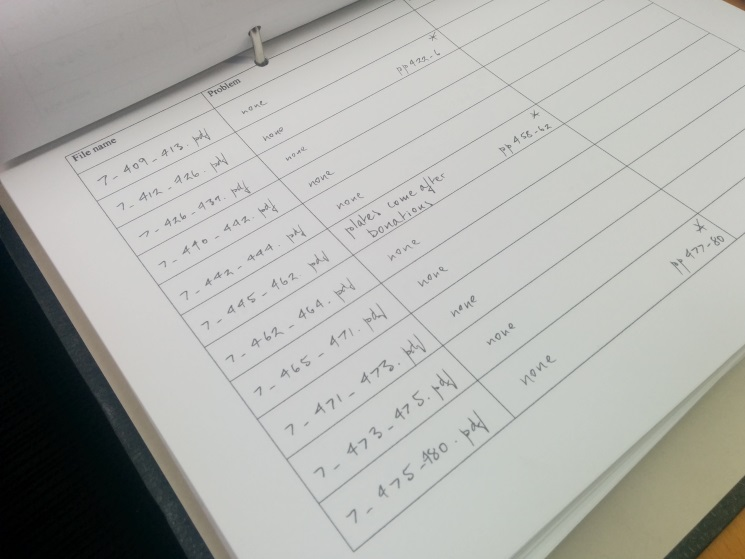 File name Problem
7-409-413.pdf none
7-412-426.pdf none *
pp422-6
7-426-439.pdf none
7-440-442.pdf none
7-442-444.pdf none
7-445-462.pdf plates come after *
donations pp458-62
7-462-464.pdf none
7-465-471.pdf none
7-471-473.pdf none
7-473-475.pdf none
7-475-480.pdf none *
pp477-80